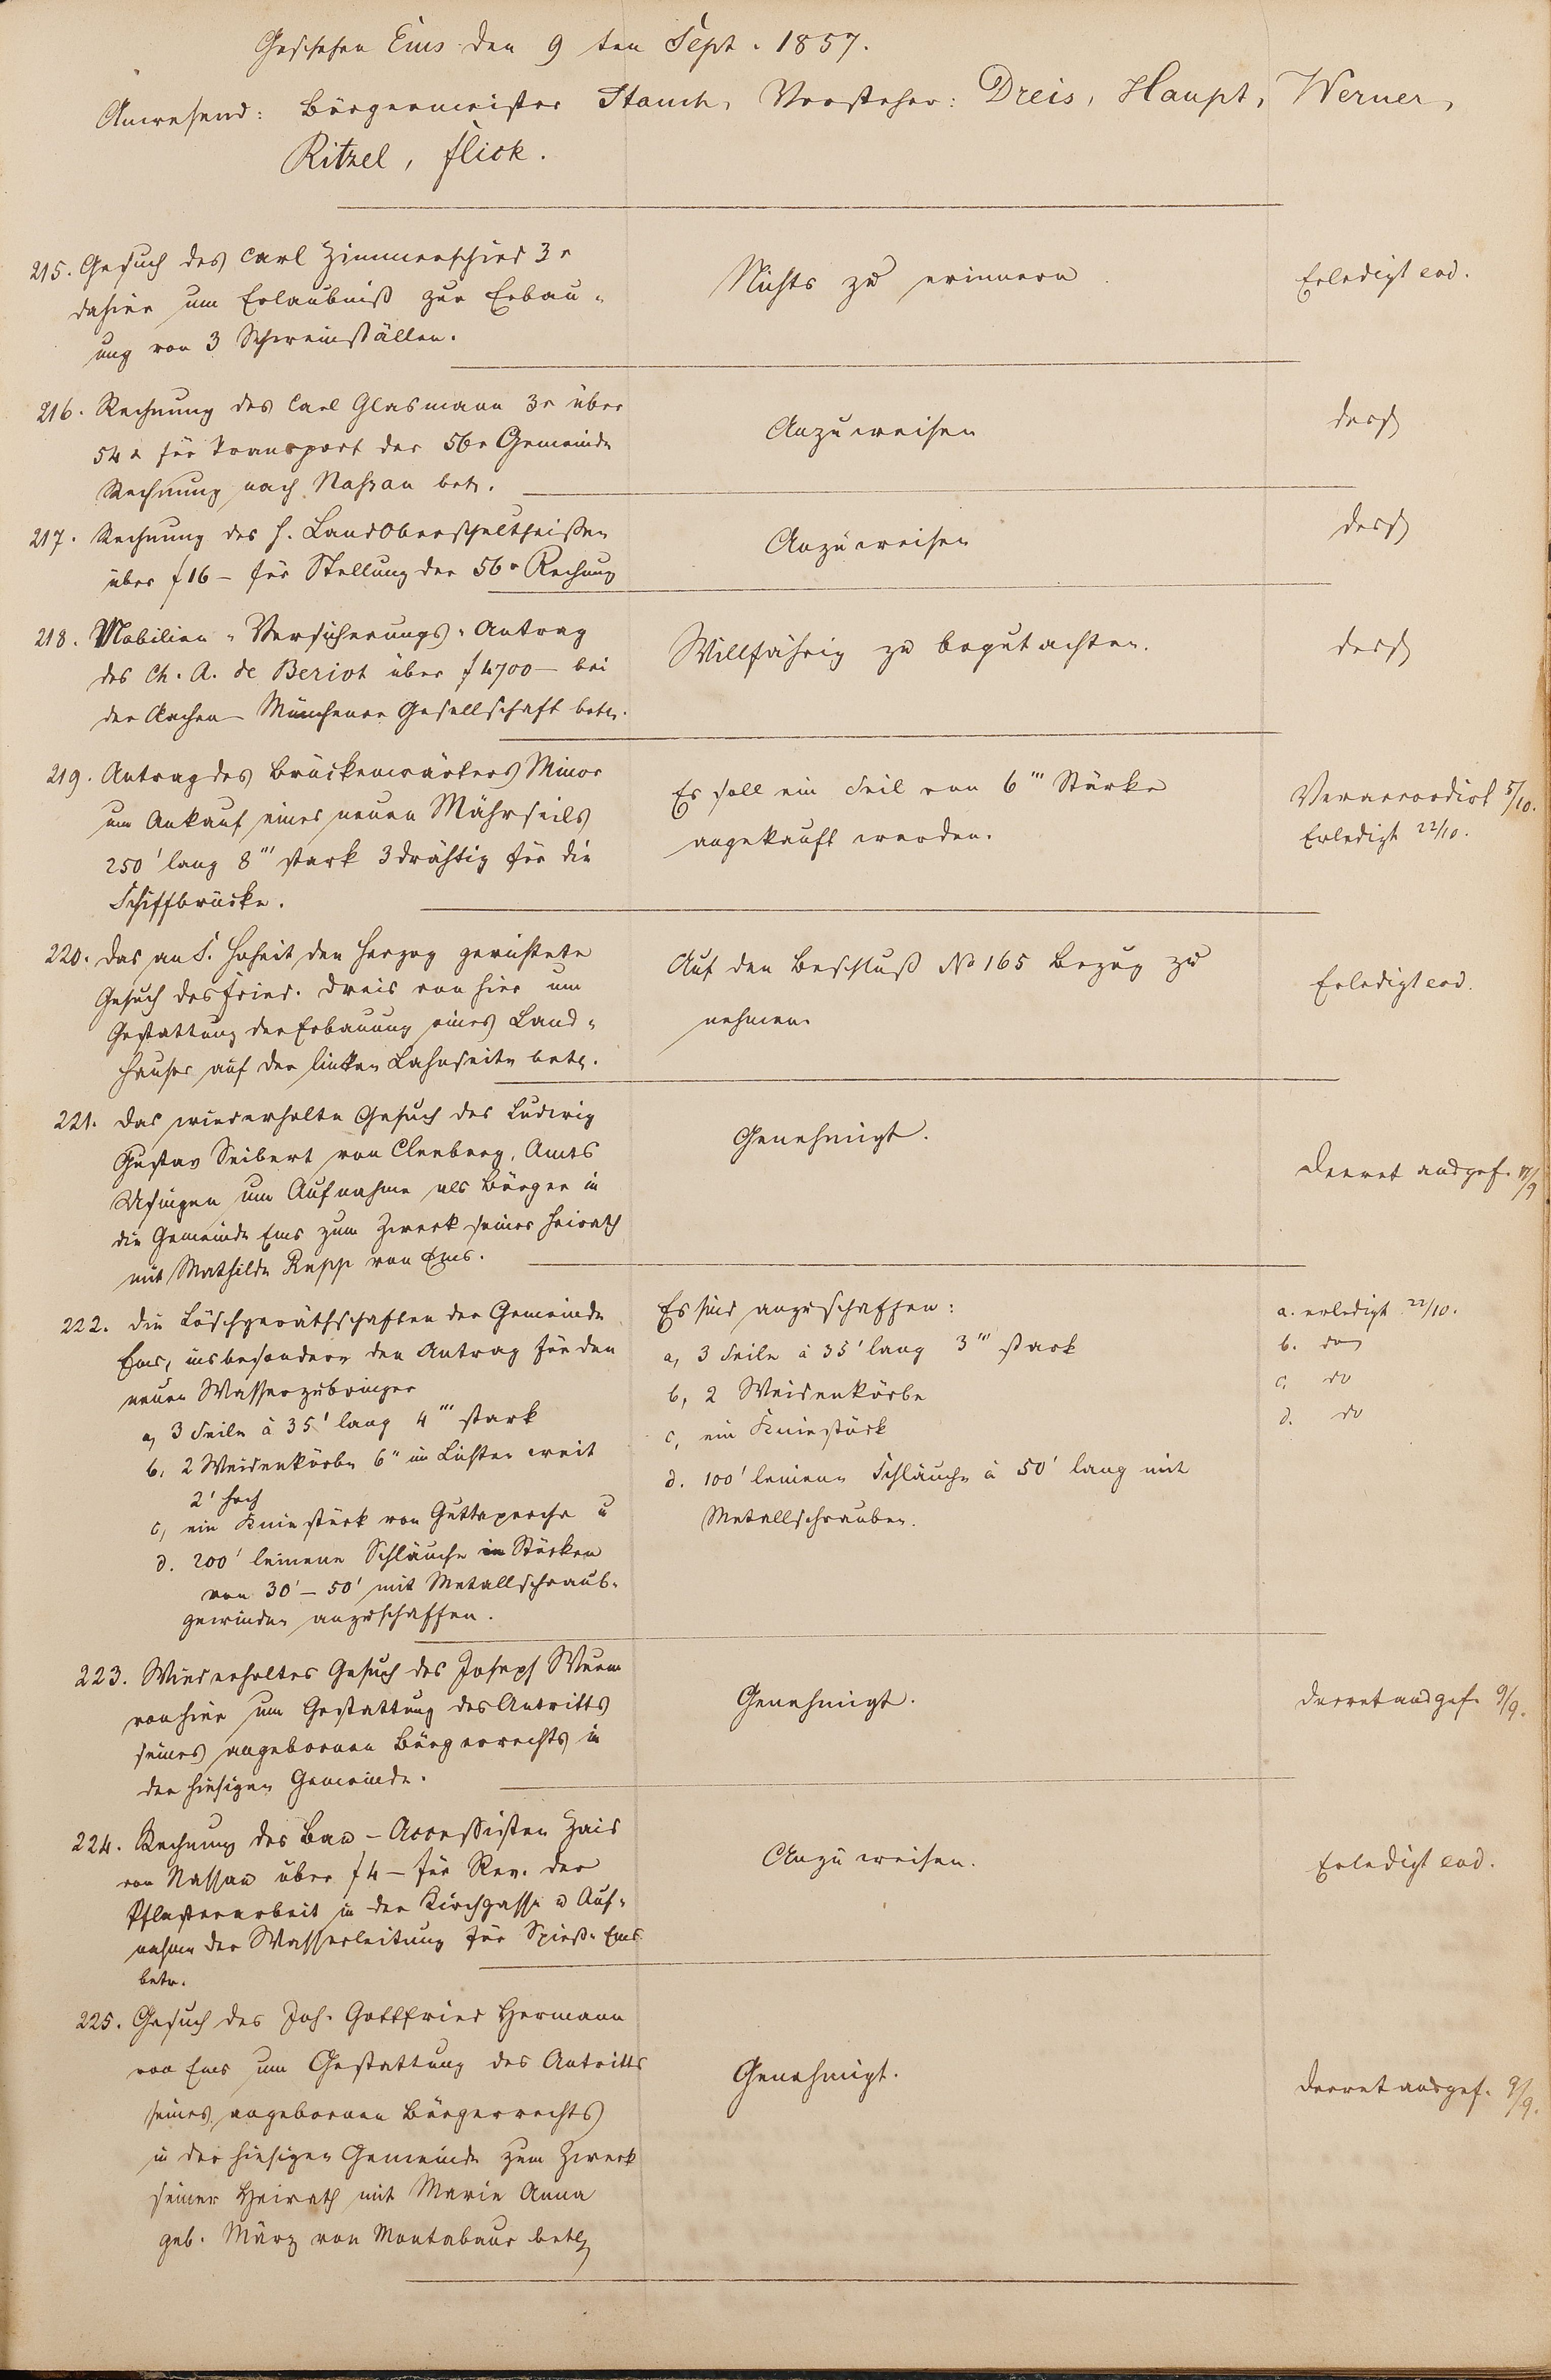 Geschehen Ems den 9 ten Sept. 1857.
Anwesend: Bürgermeister Stauch, Vorsteher: Dreis, Haupt, Werner,
Ritzel, Flick.
215. Gesuch des Carl Zimmerschied 3r
dahier um Erlaubniß zur Erbau-
ung von 3 Schweinställen.
Nichts zu erinnern
Erledigt eod.
216. Rechnung des Carl Glasmann 3r über
54 x für Transport der 56r Gemeinde
Rechnung nach Nassau betr.
Anzuweisen
desgl
217. Rechnung des H. Landoberschultheißen
über f 16 – für Stellung der 56r Rechnung
Anzuweisen
desgl
218. Mobilien-Versicherungs-Antrag
des Ch. A. de Beriot über f 4700 – bei
der Aachen–Münchener Gesellschaft betr.
Willfährig zu begutachten.
desgl
219. Antrag des Brückenwärters Minor
um Ankauf eines neuen Mährseils
250' lang 8''' stark 3drähtig für die
Schiffbrücke.
Es soll ein Seil von 6''' Stärke
angekauft werden.
Veraccordirt 5/10.
Erledigt 22/10.
220. Das an S. Hoheit den Herzog gerichtete
Gesuch des Fried. Dreis von hier um
Gestattung der Erbauung eines Land-
hauses auf der linken Lahnseite betr.
Auf den Beschluß No 165 Bezug zu
nehmen
Erledigt eod.
221. Das wiederholte Gesuch des Ludwig
Gustav Seibert von Cleeberg, Amts
Usingen um Aufnahme als Bürger in
die Gemeinde Ems zum Zweck seiner Heirath
mit Mathilde Rupp von Ems.
Genehmigt.
Decret ausgef.
222. Die Löschgeräthschaften der Gemeinde
Ems, insbesondere den Antrag für den
neuen Wasserzubringer
a, 3 Seile à 35' lang 4''' stark
b, 2 Weidenkörbe 6'' im Lichten weit
2' hoch
c, ein Kniestück von Guttapercha u
d. 200' leinene Schläuche in Stücken
von 30' – 50' mit Metallschraub-
gewinden anzuschaffen.
Es sind anzuschaffen:
a, 3 Seile à 35' lang 3''' stark
b, 2 Weidenkörbe
c, ein Kniestück
d. 100' leinene Schläuche à 50' lang mit
Metallschrauben.
a. erledigt 22/10.
b. do
c. do
d. do
223. Wiederholtes Gesuch des Joseph Wurm
von hier um Gestattung des Antritts
seines angebornen Bürgerrechts in
der hiesigen Gemeinde.
Genehmigt.
Decret ausgef. 9/9.
224. Rechnung des Bau-Accessisten Zais
von Nassau über f 4 – für Rev. der
Pflasterarbeit in der Kirchgasse u Auf-
nahme der Wasserleitung für Spieß-Ems
betr.
Anzuweisen.
Erledigt eod.
225. Gesuch des Joh. Gottfried Hermann
von Ems um Gestattung des Antritts
seines angebornen Bürgerrechts
in der hiesigen Gemeinde zum Zweck
seiner Heirath mit Marie Anna
geb. März von Montabaur betr
Genehmigt.
Decret ausgef. 9/9.